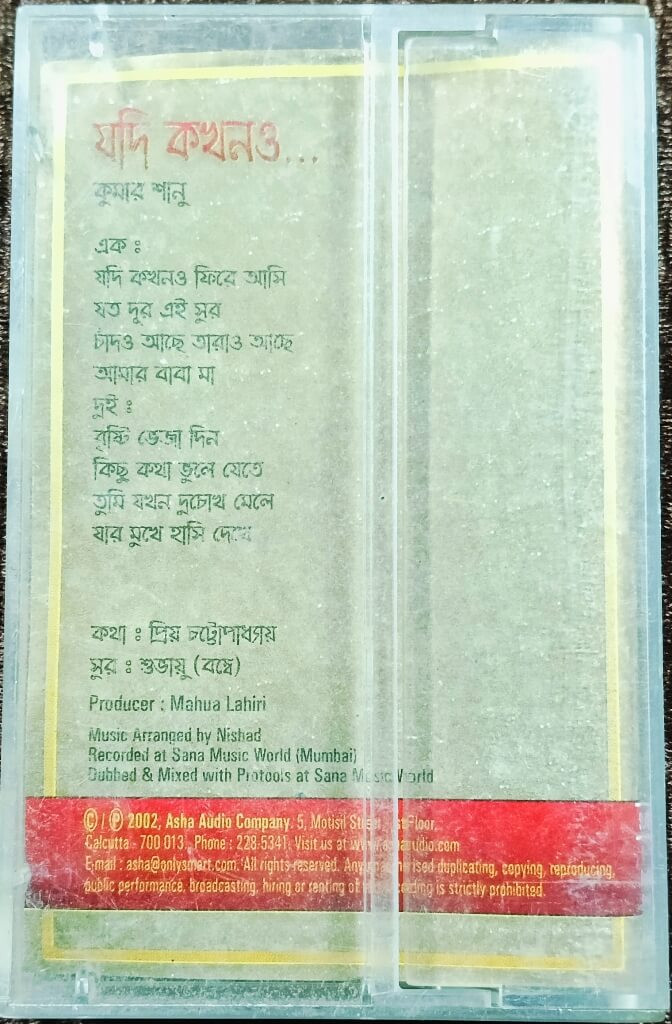 যদি কখনও...
কুমার শানু
এক :
যদি কখনও ফিরে আসি
যত দূর এই সুর
চাঁদও আছে তারাও আছে
আমার বাবা মা
দুই :
বৃষ্টি ভেজা দিন
কিছু কথা ভুলে যেতে
তুমি যখন দুচোখ মেলে
যার মুখে হাসি দেখে
কথা : প্রিয় চট্টোপাধ্যায়
সুর : শুভায়ু (বম্বে)
Producer : Mahua Lahiri
Music Arranged by Nishad
Recorded at Sana Music World (Mumbai)
Dubbed & Mixed with Protools at Sana Music World
© / ℗ 2002, Asha Audio Company. 5, Motisil Street, 1st Floor,
Calcutta - 700 013, Phone : 228-5341, Visit us at www.ashaaudio.com
E-mail : asha@onlysmart.com. All rights reserved. Any unauthorised duplicating, copying, reproducing,
public performance, broadcasting, hiring or renting of this recording is strictly prohibited.